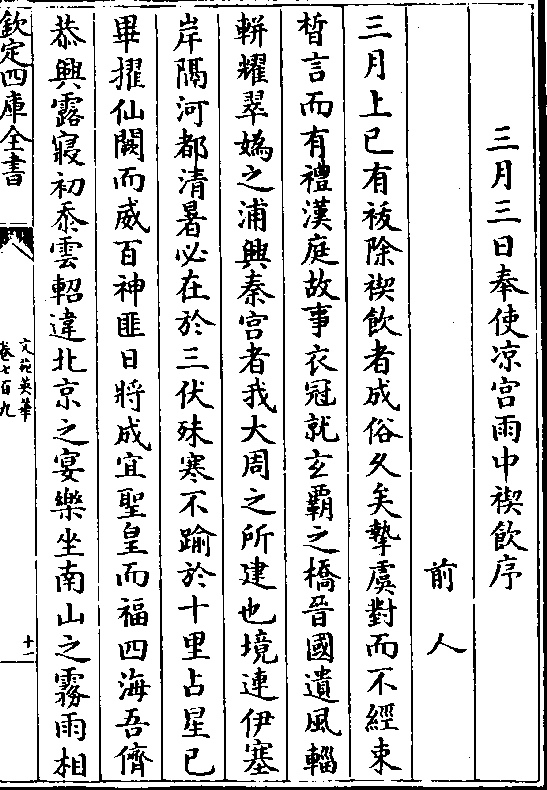 三月三日奉使凉宫雨中禊飲序
前人
三月上巳有祓除禊飲者成俗久矣摯虞對而不經束
晳言而有禮漢庭故事衣冠就玄覇之橋晉國遺風輜
軿耀翠嬀之浦興秦宮者我大周之所建也境連伊塞
岸隔河都清暑必在於三伏殊寒不踰於十里占星已
畢擢仙闕而威百神匪日將成宜聖皇而福四海吾儕
恭興露寢初忝雲軺違北京之宴樂坐南山之霧雨相
欽定四庫全書
文苑英華
卷七百九
十一